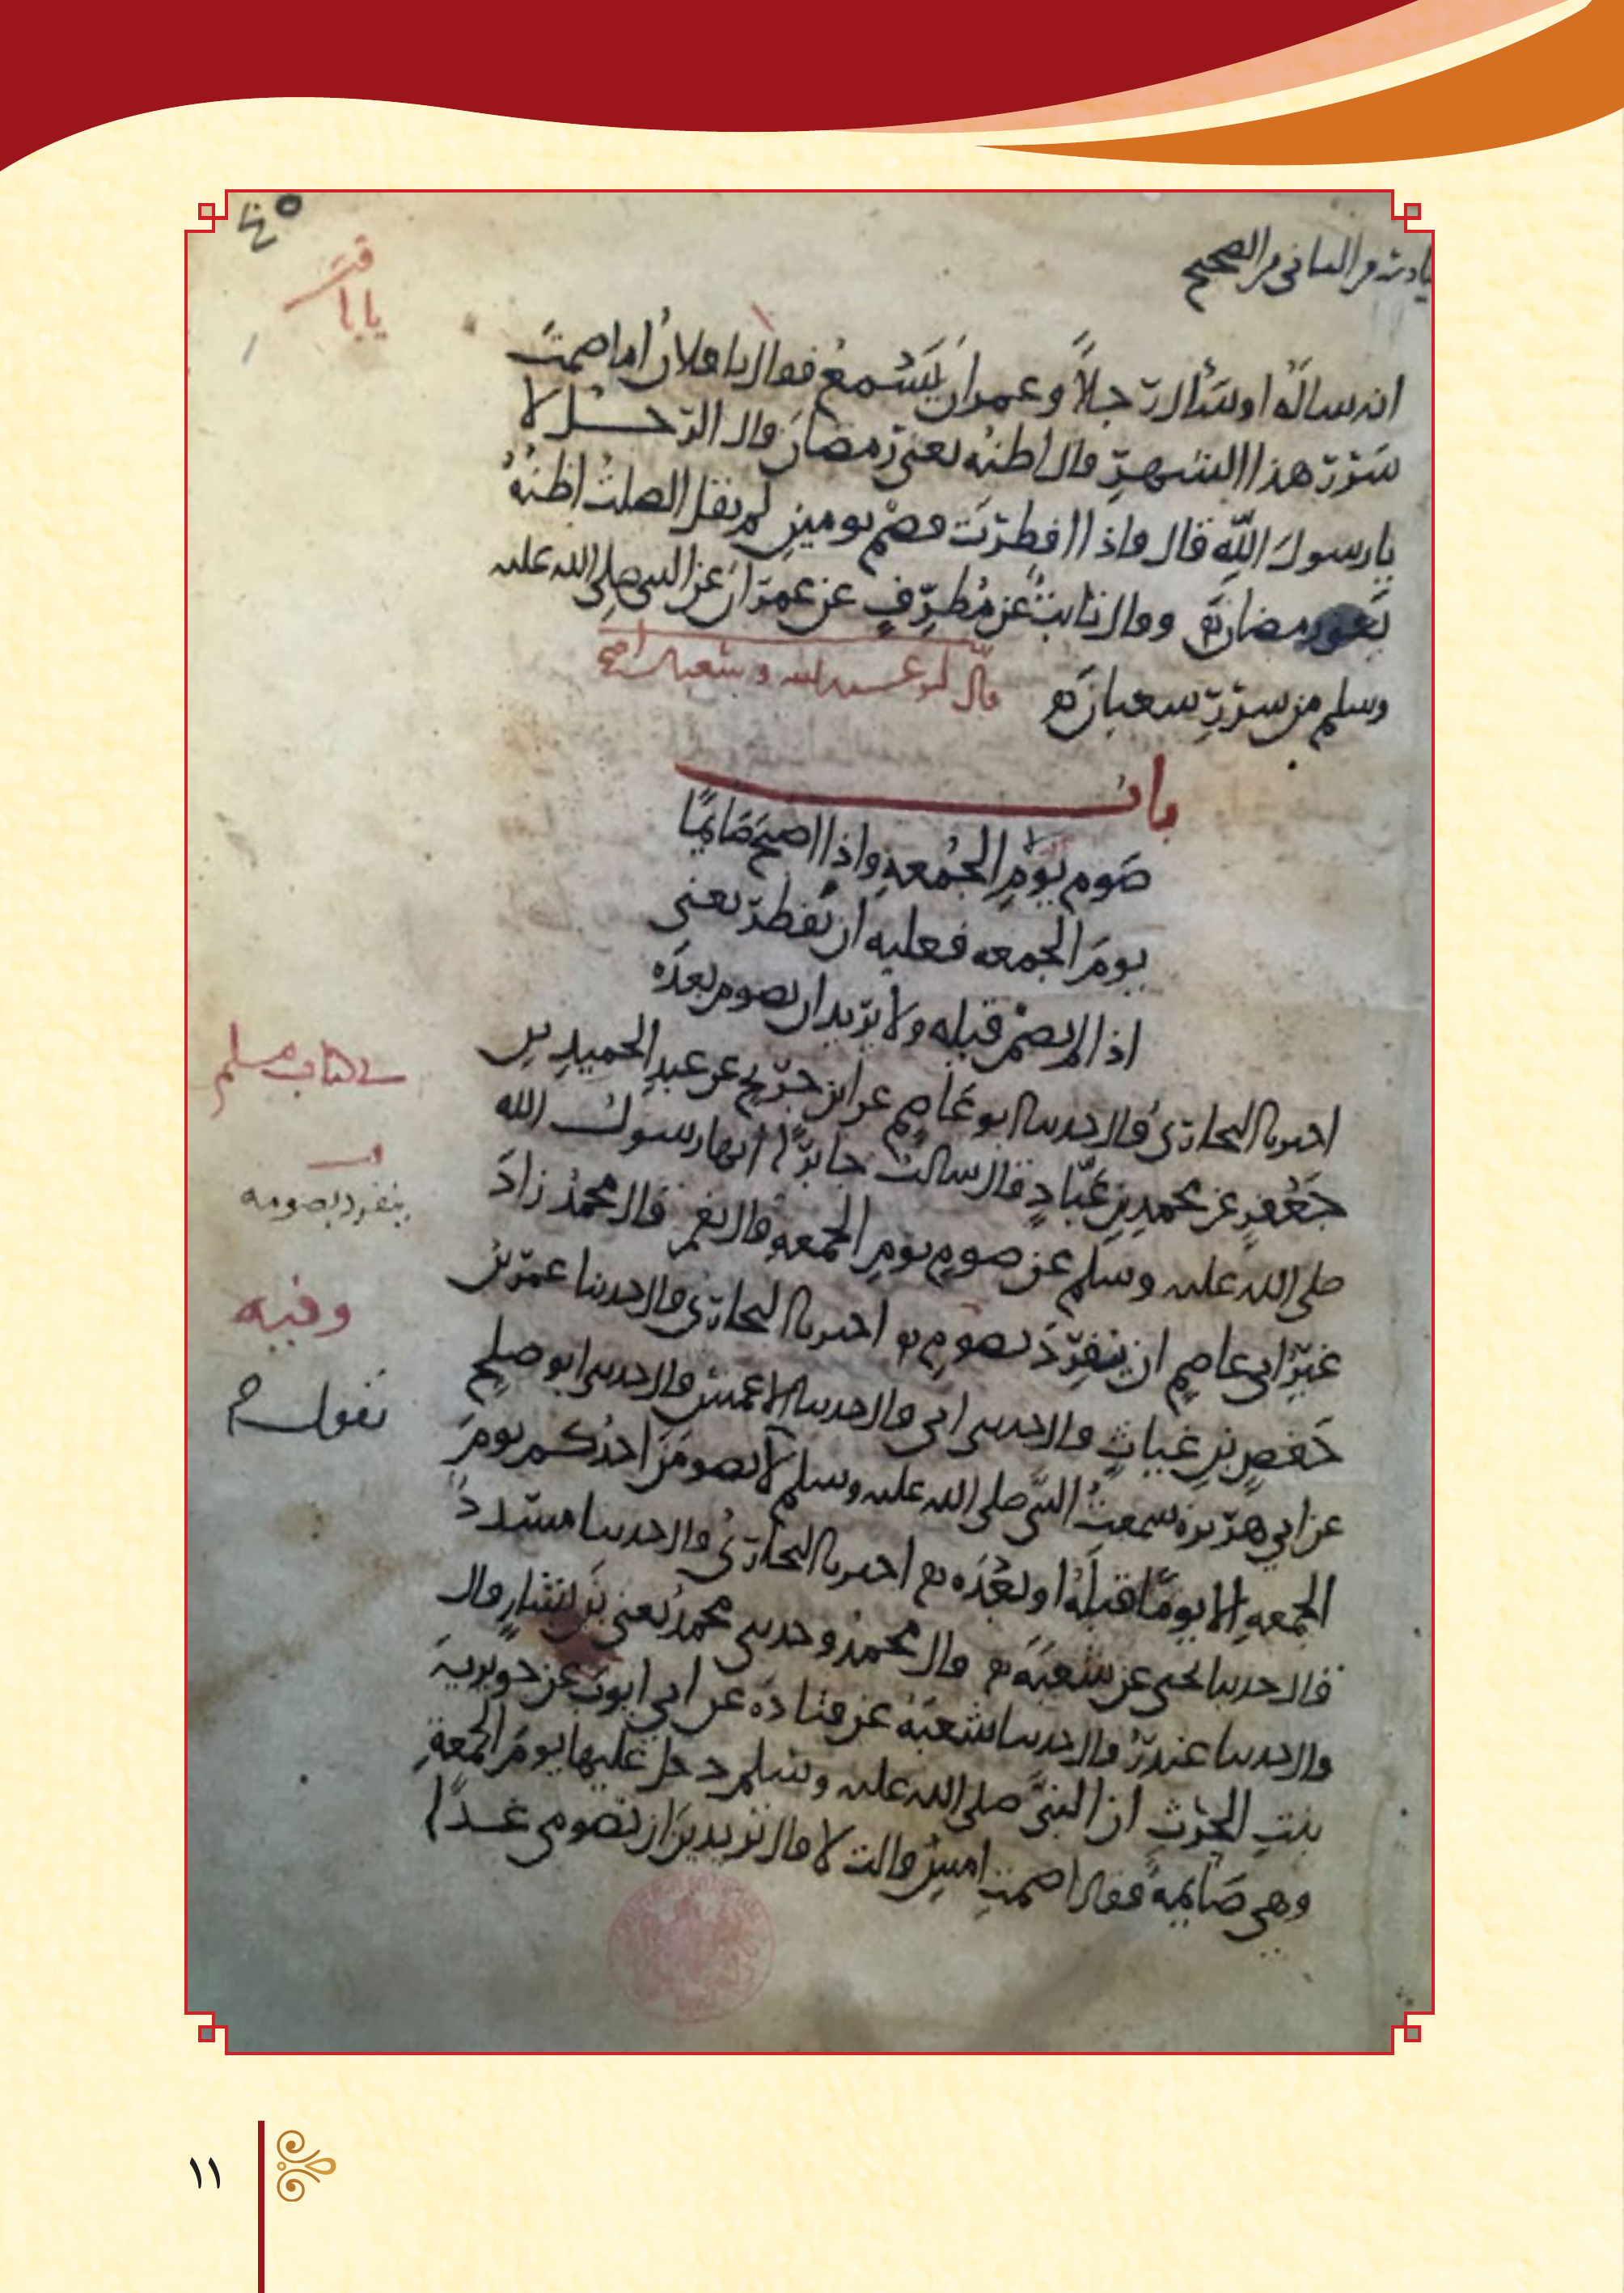 من الصحيح
٤٥
انه ساله او سأل رجلا وعمران يسمع فقال يا فلان اما صمت
سرر هذا الشهر قال اظنه يعنى رمضان قال الرجل لا
يا رسول الله قال فاذا افطرت فصم يومين لم يقل الصلت اظنه
يعنى رمضان وقال ثابت عن مطرف عن عمران عن النبى صلى الله عليه
وسلم من سرر شعبان
قال ابو عبد الله وشعبان اصح
باب
صوم يوم الجمعه واذا اصبح صائما
يوم الجمعه فعليه ان يفطر يعنى
اذا لم يصم قبله ولا يريد ان يصوم بعده
اخبرنا البخارى قال حدثنا ابو عاصم عن ابن جريج عن عبد الحميد بن
جعفر عن محمد بن عباد قال سالت جابرا انها رسول الله
صلى الله عليه وسلم عن صوم يوم الجمعه قال نعم قال محمد زاد
غير ابى عاصم ان ينفرد بصوم اخبرنا البخارى قال حدثنا عمر بن
حفص بن غياث قال حدثنى ابى قال حدثنا الاعمش قال حدثنى ابو صلح
عن ابى هريره سمعت النبى صلى الله عليه وسلم لا يصومن احدكم يوم
الجمعه الا يوما قبله او بعده اخبرنا البخارى قال حدثنا مسدد
قال حدثنا يحيى عن شعبه قال محمد وحدثنى محمد يعنى بن بشار قال
قال حدثنا غندر قال حدثنا شعبه عن قتاده عن ابى ايوب عن جويرية
بنت الحرث ان النبى صلى الله عليه وسلم دخل عليها يوم الجمعة
وهى صائمة فقال اصمت امس قالت لا قال تريدين ان تصومى غدا
فى كتاب مسلم
ينفرد بصومه
وفيه
يقول
١١